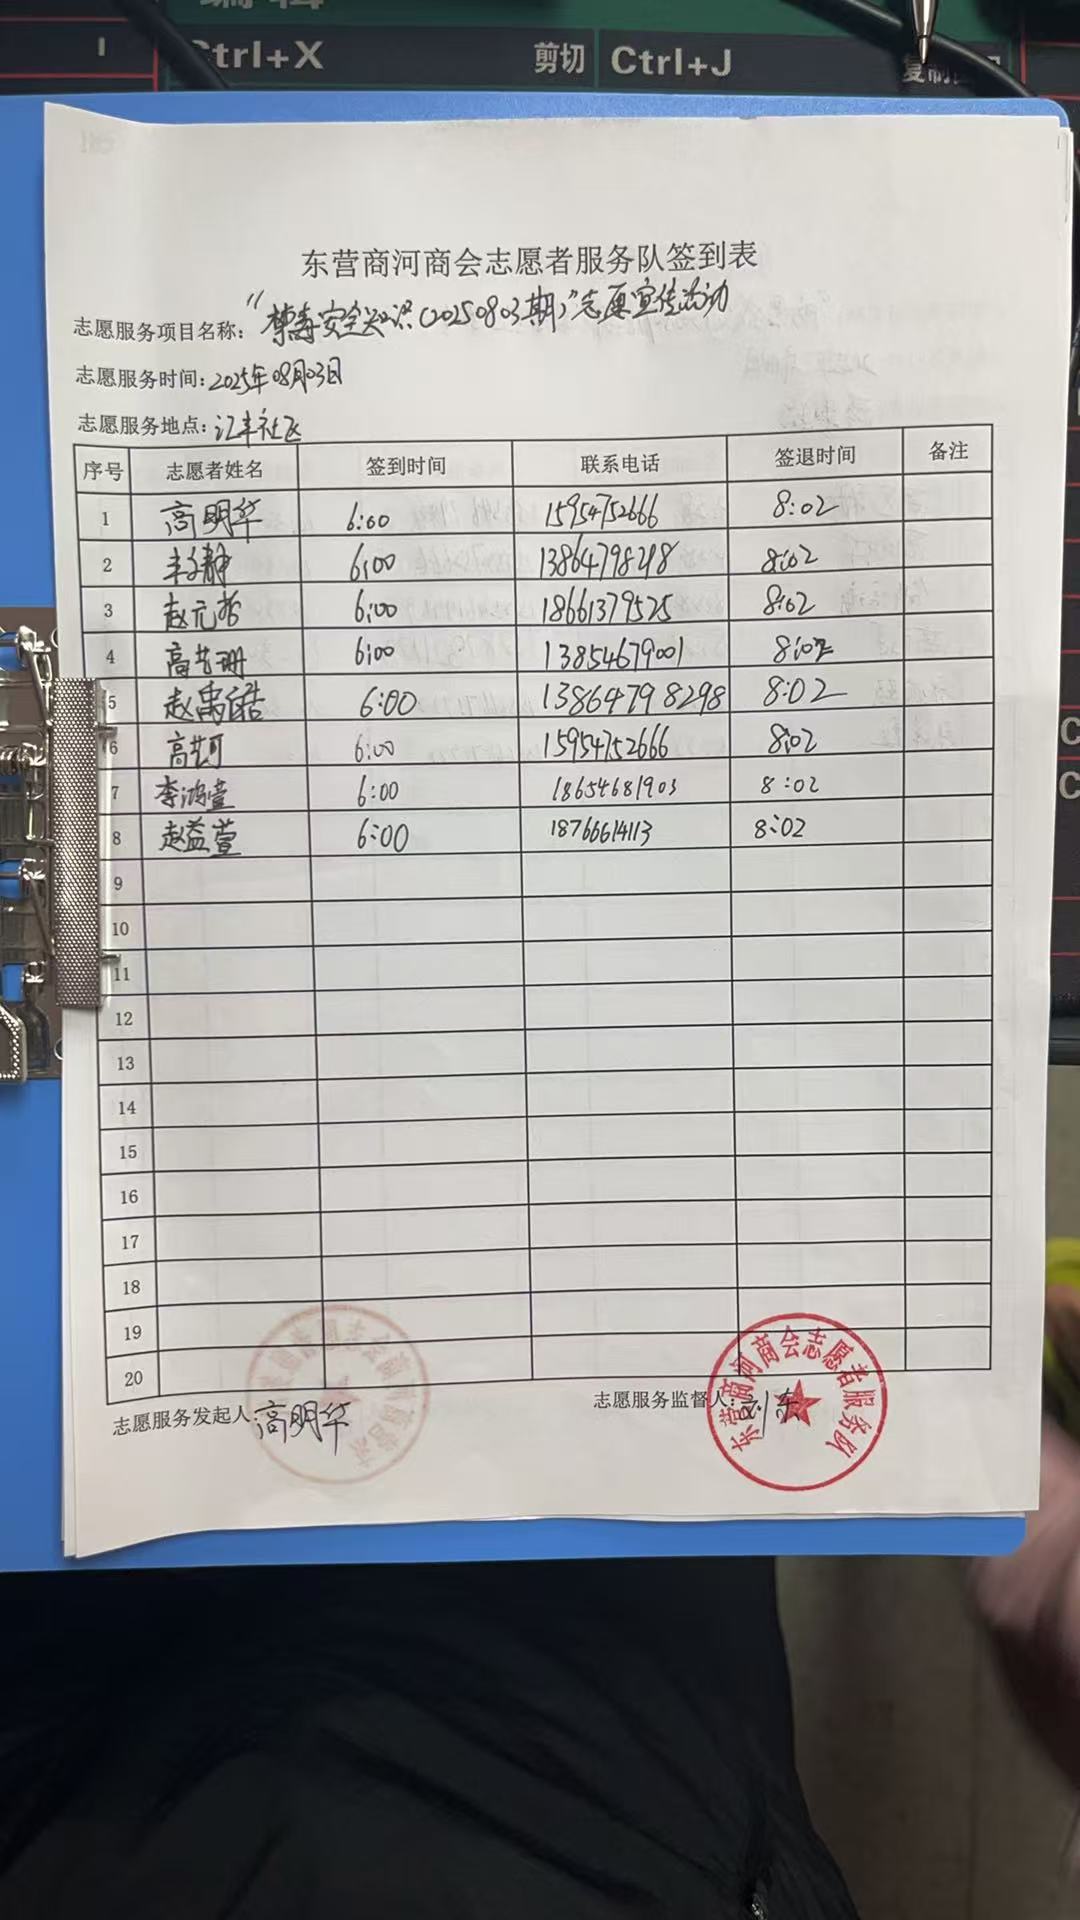 Ctrl+X 剪切 Ctrl+J
东营商河商会志愿者服务队签到表
志愿服务项目名称：“禁毒安全知识（20250803期）”志愿宣传活动
志愿服务时间：2025年08月03日
志愿服务地点：汇丰社区
序号 志愿者姓名 签到时间 联系电话 签退时间 备注
1 高明华 6:00 15954752666 8:02
2 6:00 13864798298 8:02
3 赵元 6:00 18661379525 8:02
4 高艺珊 6:00 13854679001 8:02
5 赵禹皓 6:00 13864798298 8:02
6 高艺珂 6:00 15954752666 8:02
7 李鸿萱 6:00 18654681903 8:02
8 赵益萱 6:00 18766614113 8:02
9
10
11
12
13
14
15
16
17
18
19
20
志愿服务发起人：高明华 志愿服务监督人：刘东
东营商河商会志愿者服务队